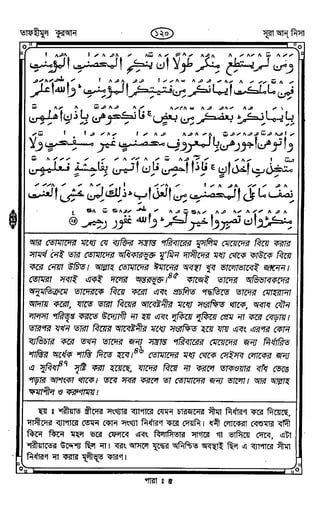 তাফহীমুল কুরআন
১২০
সূরা আন্ নিসা
وَمَنْ لَّمْ يَسْتَطِعْ مِنْكُمْ طَوْلًا أَنْ يَّنْكِحَ الْمُحْصَنٰتِ الْمُؤْمِنٰتِ
فَمِنْ مَّا مَلَكَتْ أَيْمَانُكُمْ مِّنْ فَتَيٰتِكُمُ الْمُؤْمِنٰتِ ۚ وَاللّٰهُ أَعْلَمُ
بِإِيْمَانِكُمْ ۚ بَعْضُكُمْ مِّنْ بَعْضٍ ۚ فَانْكِحُوْهُنَّ بِإِذْنِ أَهْلِهِنَّ
وَاٰتُوْهُنَّ أُجُوْرَهُنَّ بِالْمَعْرُوْفِ مُحْصَنٰتٍ غَيْرَ مُسٰفِحٰتٍ وَّلَا
مُتَّخِذٰتِ أَخْدَانٍ ۚ فَإِذَا أُحْصِنَّ فَإِنْ أَتَيْنَ بِفَاحِشَةٍ فَعَلَيْهِنَّ
نِصْفُ مَا عَلَى الْمُحْصَنٰتِ مِنَ الْعَذَابِ ۚ ذٰلِكَ لِمَنْ خَشِيَ الْعَنَتَ
مِنْكُمْ ۚ وَأَنْ تَصْبِرُوْا خَيْرٌ لَّكُمْ ۚ وَاللّٰهُ غَفُوْرٌ رَّحِيْمٌ
আর তোমাদের মধ্যে যে ব্যক্তির সম্ভ্রান্ত পরিবারের মুসলিম মেয়েদের বিয়ে করার
সামর্থ নেই তার তোমাদের অধিকারভুক্ত মু'মিন দাসীদের মধ্য থেকে কাউকে বিয়ে
করে নেয়া উচিত। আল্লাহ তোমাদের ঈমানের অবস্থা খুব ভালোভাবেই জানেন।
তোমরা সবাই একই দলের অন্তরভুক্ত।৪৫ কাজেই তাদের অভিভাবকদের
অনুমতিক্রমে তাদেরকে বিয়ে করো এবং প্রচলিত পদ্ধতিতে তাদের মোহরানা
আদায় করো, যাতে তারা বিয়ের আবেষ্টনীর মধ্যে সংরক্ষিত থাকে, অবাধ যৌন
লালসা পরিতৃপ্ত করতে উদ্যোগী না হয় এবং লুকিয়ে লুকিয়ে প্রেম না করে বেড়ায়।
তারপর যখন তারা বিয়ের আবেষ্টনীর মধ্যে সংরক্ষিত হয়ে যায় এবং এরপর কোন
ব্যভিচার করে তখন তাদের জন্য সম্ভ্রান্ত পরিবারের মেয়েদের জন্য নির্ধারিত
শাস্তির অর্ধেক শাস্তি দিতে হবে।৪৬ তোমাদের মধ্য থেকে সেইসব লোকের জন্য
এ সুবিধা৪৭ সৃষ্টি করা হয়েছে, যাদের বিয়ে না করলে তাকওয়ার বাঁধ ভেঙে
পড়ার আশংকা থাকে। তবে সবর করলে তা তোমাদের জন্য ভালো। আর আল্লাহ
ক্ষমাশীল ও করুণাময়।
ছয় ঃ শরীয়াত স্ত্রীদের সংখ্যার ব্যাপারে যেমন চারজনের সীমা নির্ধারণ করে দিয়েছে,
দাসীদের ব্যাপারে তেমন কোন সংখ্যা নির্ধারণ করে দেয়নি। ধনী লোকেরা বেশুমার বাঁদী
কিনে কিনে মহল ভরে ফেলবে এবং বিলাসিতার সাগরে গা ভাসিয়ে দেবে, এটা
শরীয়াতের উদ্দেশ্য ছিল না। বরং আসলে যুদ্ধের অনিশ্চিত অবস্থাই ছিল এ ব্যাপারে সীমা
নির্ধারণ না করার মূলীভূত কারণ।
পারা ঃ ৫